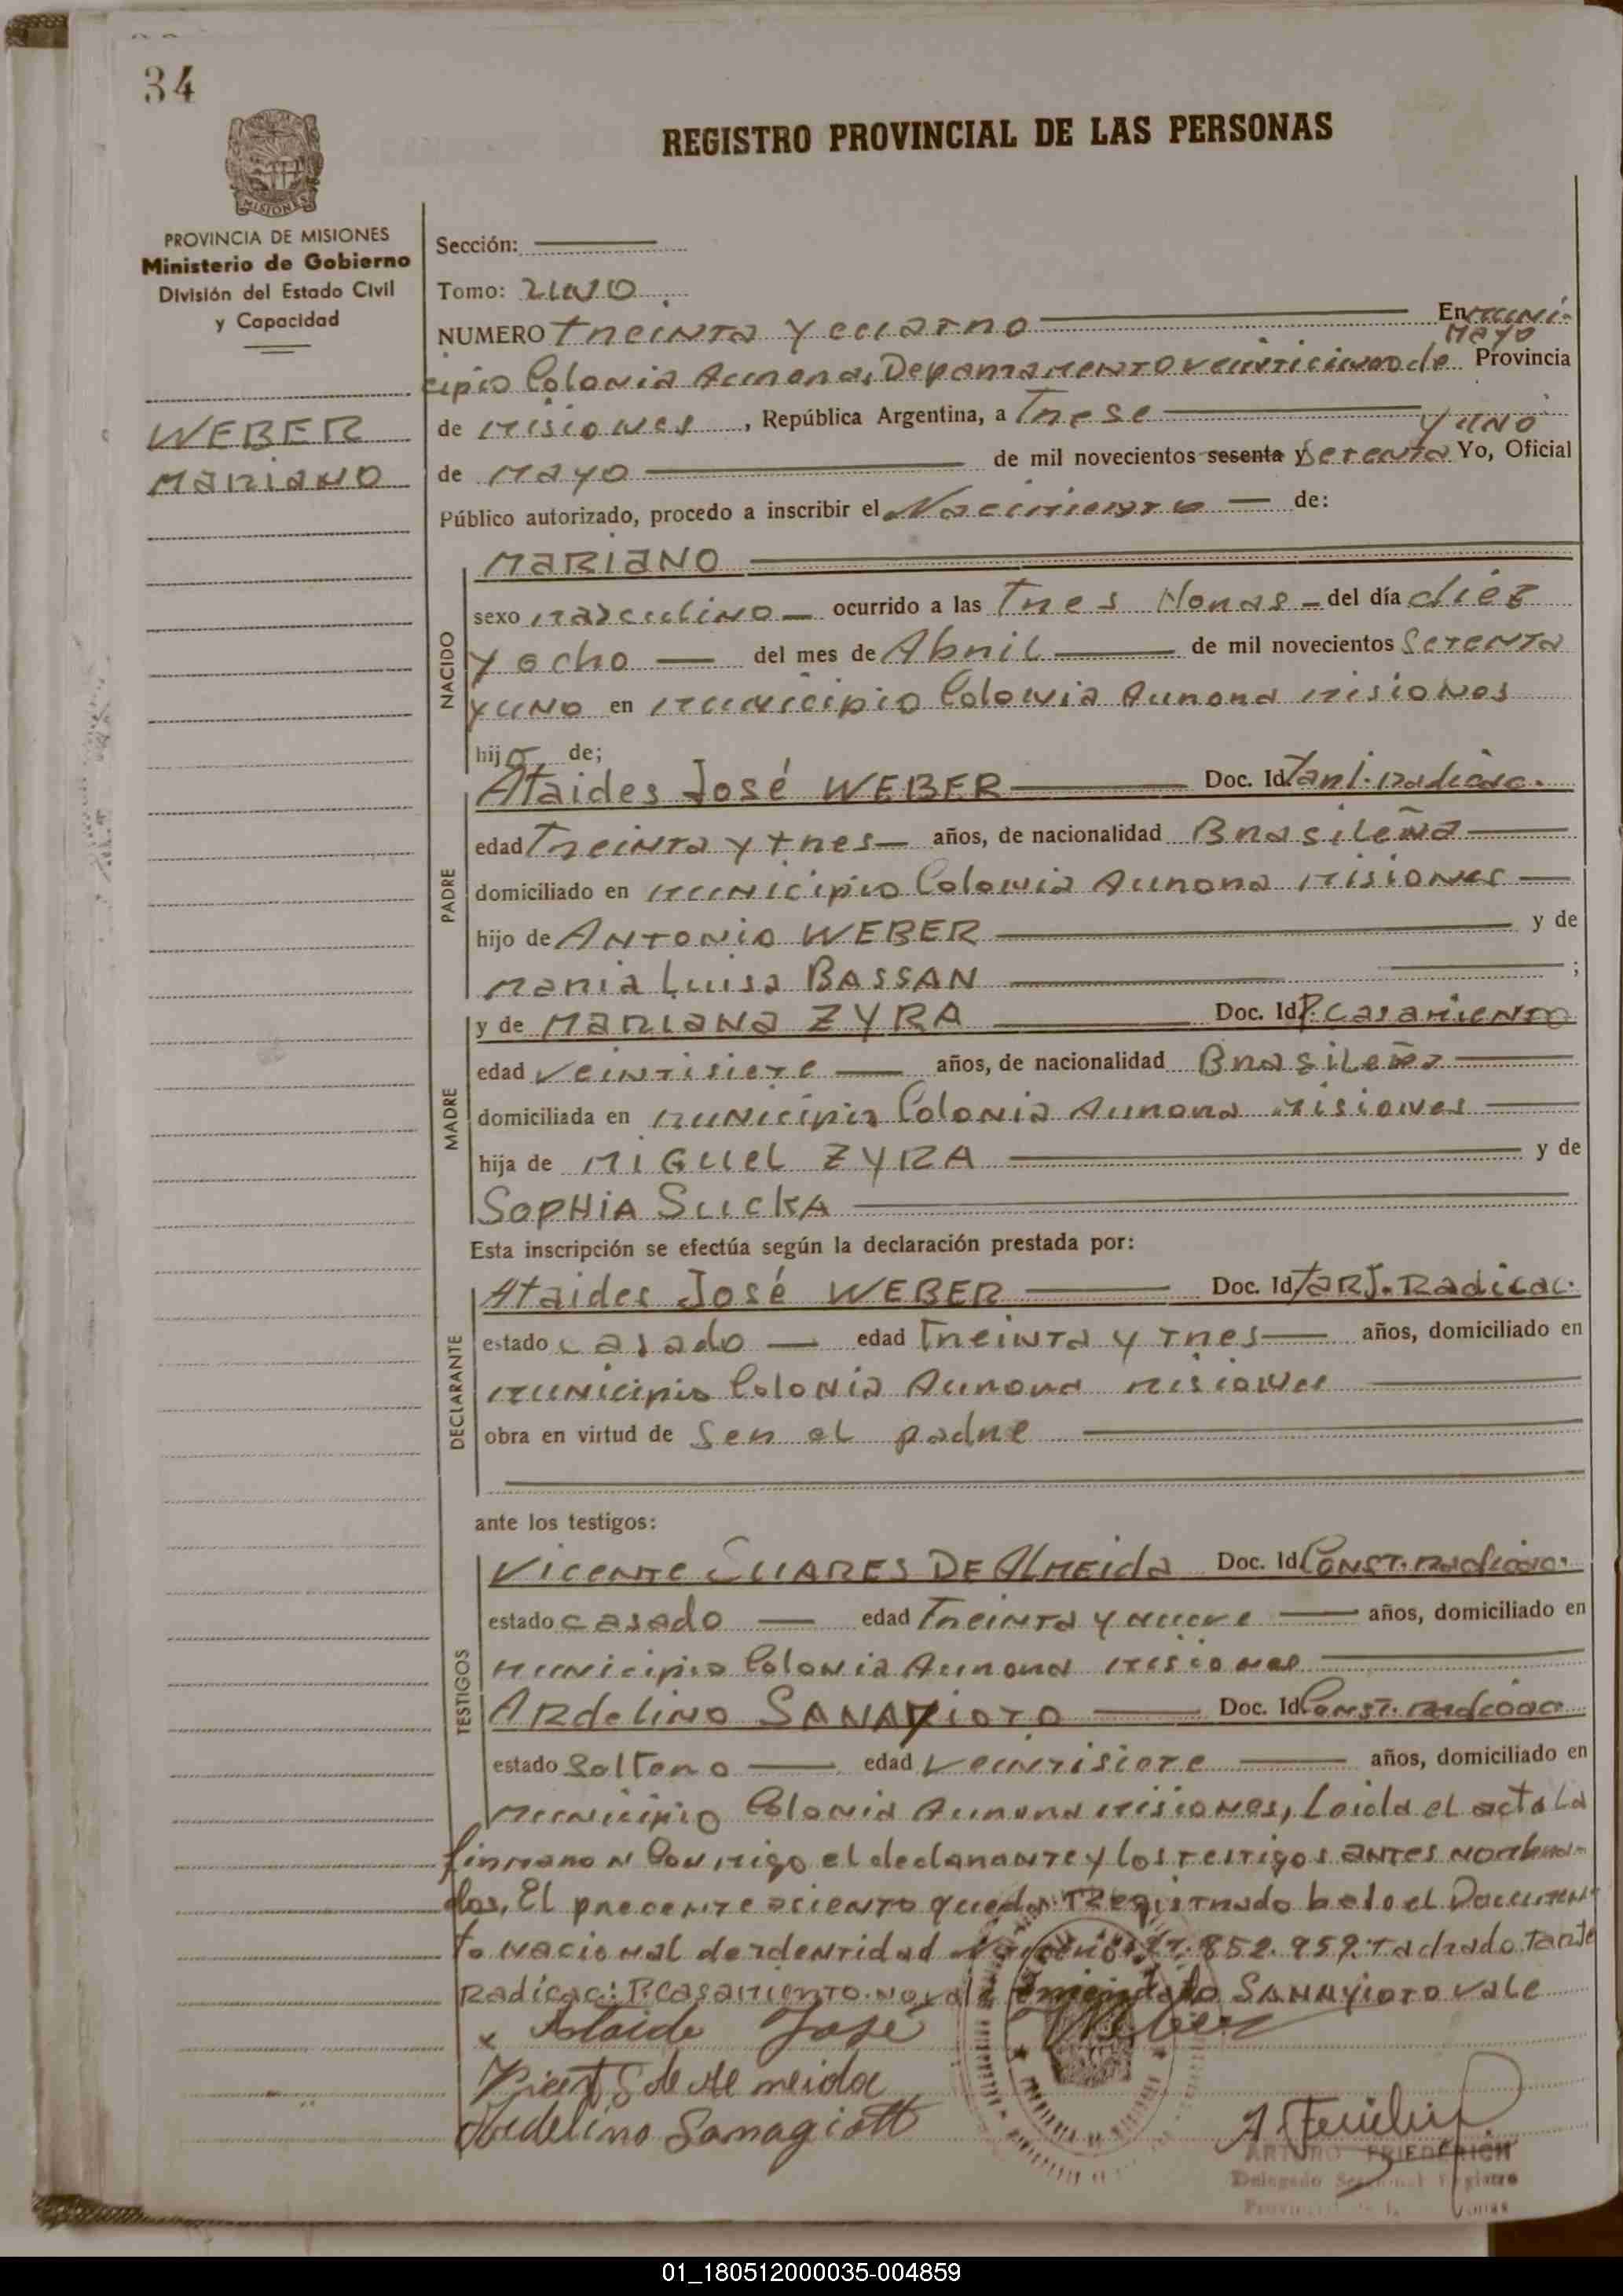 34
REGISTRO PROVINCIAL DE LAS PERSONAS
MISIONES
PROVINCIA DE MISIONES
Ministerio de Gobierno
División del Estado Civil
y Capacidad
WEBER
MARIANO
Sección:
Tomo: UNO
NUMERO treinta y cuatro En Muni-
cipio Colonia Aurora, Departamento veinticinco de Mayo Provincia
de Misiones, República Argentina, a Trese
de Mayo de mil novecientos sesenta y Setenta y uno Yo, Oficial
Público autorizado, procedo a inscribir el Nacimiento de:
NACIDO
MARIANO
sexo masculino ocurrido a las Tres Horas del día diez
y ocho del mes de Abril de mil novecientos Setenta
y uno en Municipio Colonia Aurora Misiones
hijo de;
PADRE
Ataides José WEBER Doc. Id Tarj. radicac.
edad Treinta y tres años, de nacionalidad Brasileña
domiciliado en Municipio Colonia Aurora Misiones
hijo de ANTONIO WEBER y de
Maria Luisa BASSAN ;
MADRE
y de MARIANA ZYRA Doc. Id P. Casamiento
edad veintisiete años, de nacionalidad Brasileña
domiciliada en Municipio Colonia Aurora Misiones
hija de MIGUEL ZYRA y de
SOPHIA SUCKA
Esta inscripción se efectúa según la declaración prestada por:
DECLARANTE
Ataides José WEBER Doc. Id TARJ. Radicac.
estado casado edad Treinta y tres años, domiciliado en
Municipio Colonia Aurora Misiones
obra en virtud de Ser el padre
ante los testigos:
TESTIGOS
VICENTE SUARES DE ALMEIDA Doc. Id Const. radicac.
estado casado edad Treinta y nueve años, domiciliado en
Municipio Colonia Aurora Misiones
ARdelino SANAYIOTO Doc. Id Const. radicac
estado Soltero edad Veintisiete años, domiciliado en
Municipio Colonia Aurora Misiones, Leida el acta la
firmaron Conmigo el declarante y los testigos antes nombra-
dos, El precente aciento queda Registrado bajo el Documen-
to nacional de identidad 852.959. Tachado. Tarje
Radicac: P. casamiento. no vale Emendado SANAYIOTO vale
x Ataide José Weber
Vicente S de Almeida
Ardelino Sanagiott
ARTURO FRIEDERICH
Delegado Seccional Registro
01_180512000035-004859